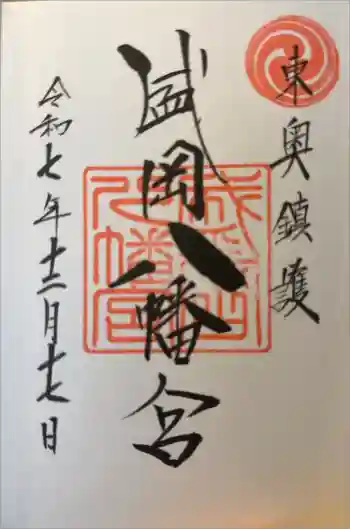 東奥鎮護
盛岡八幡宮
令和七年十二月十七日
盛岡八幡宮